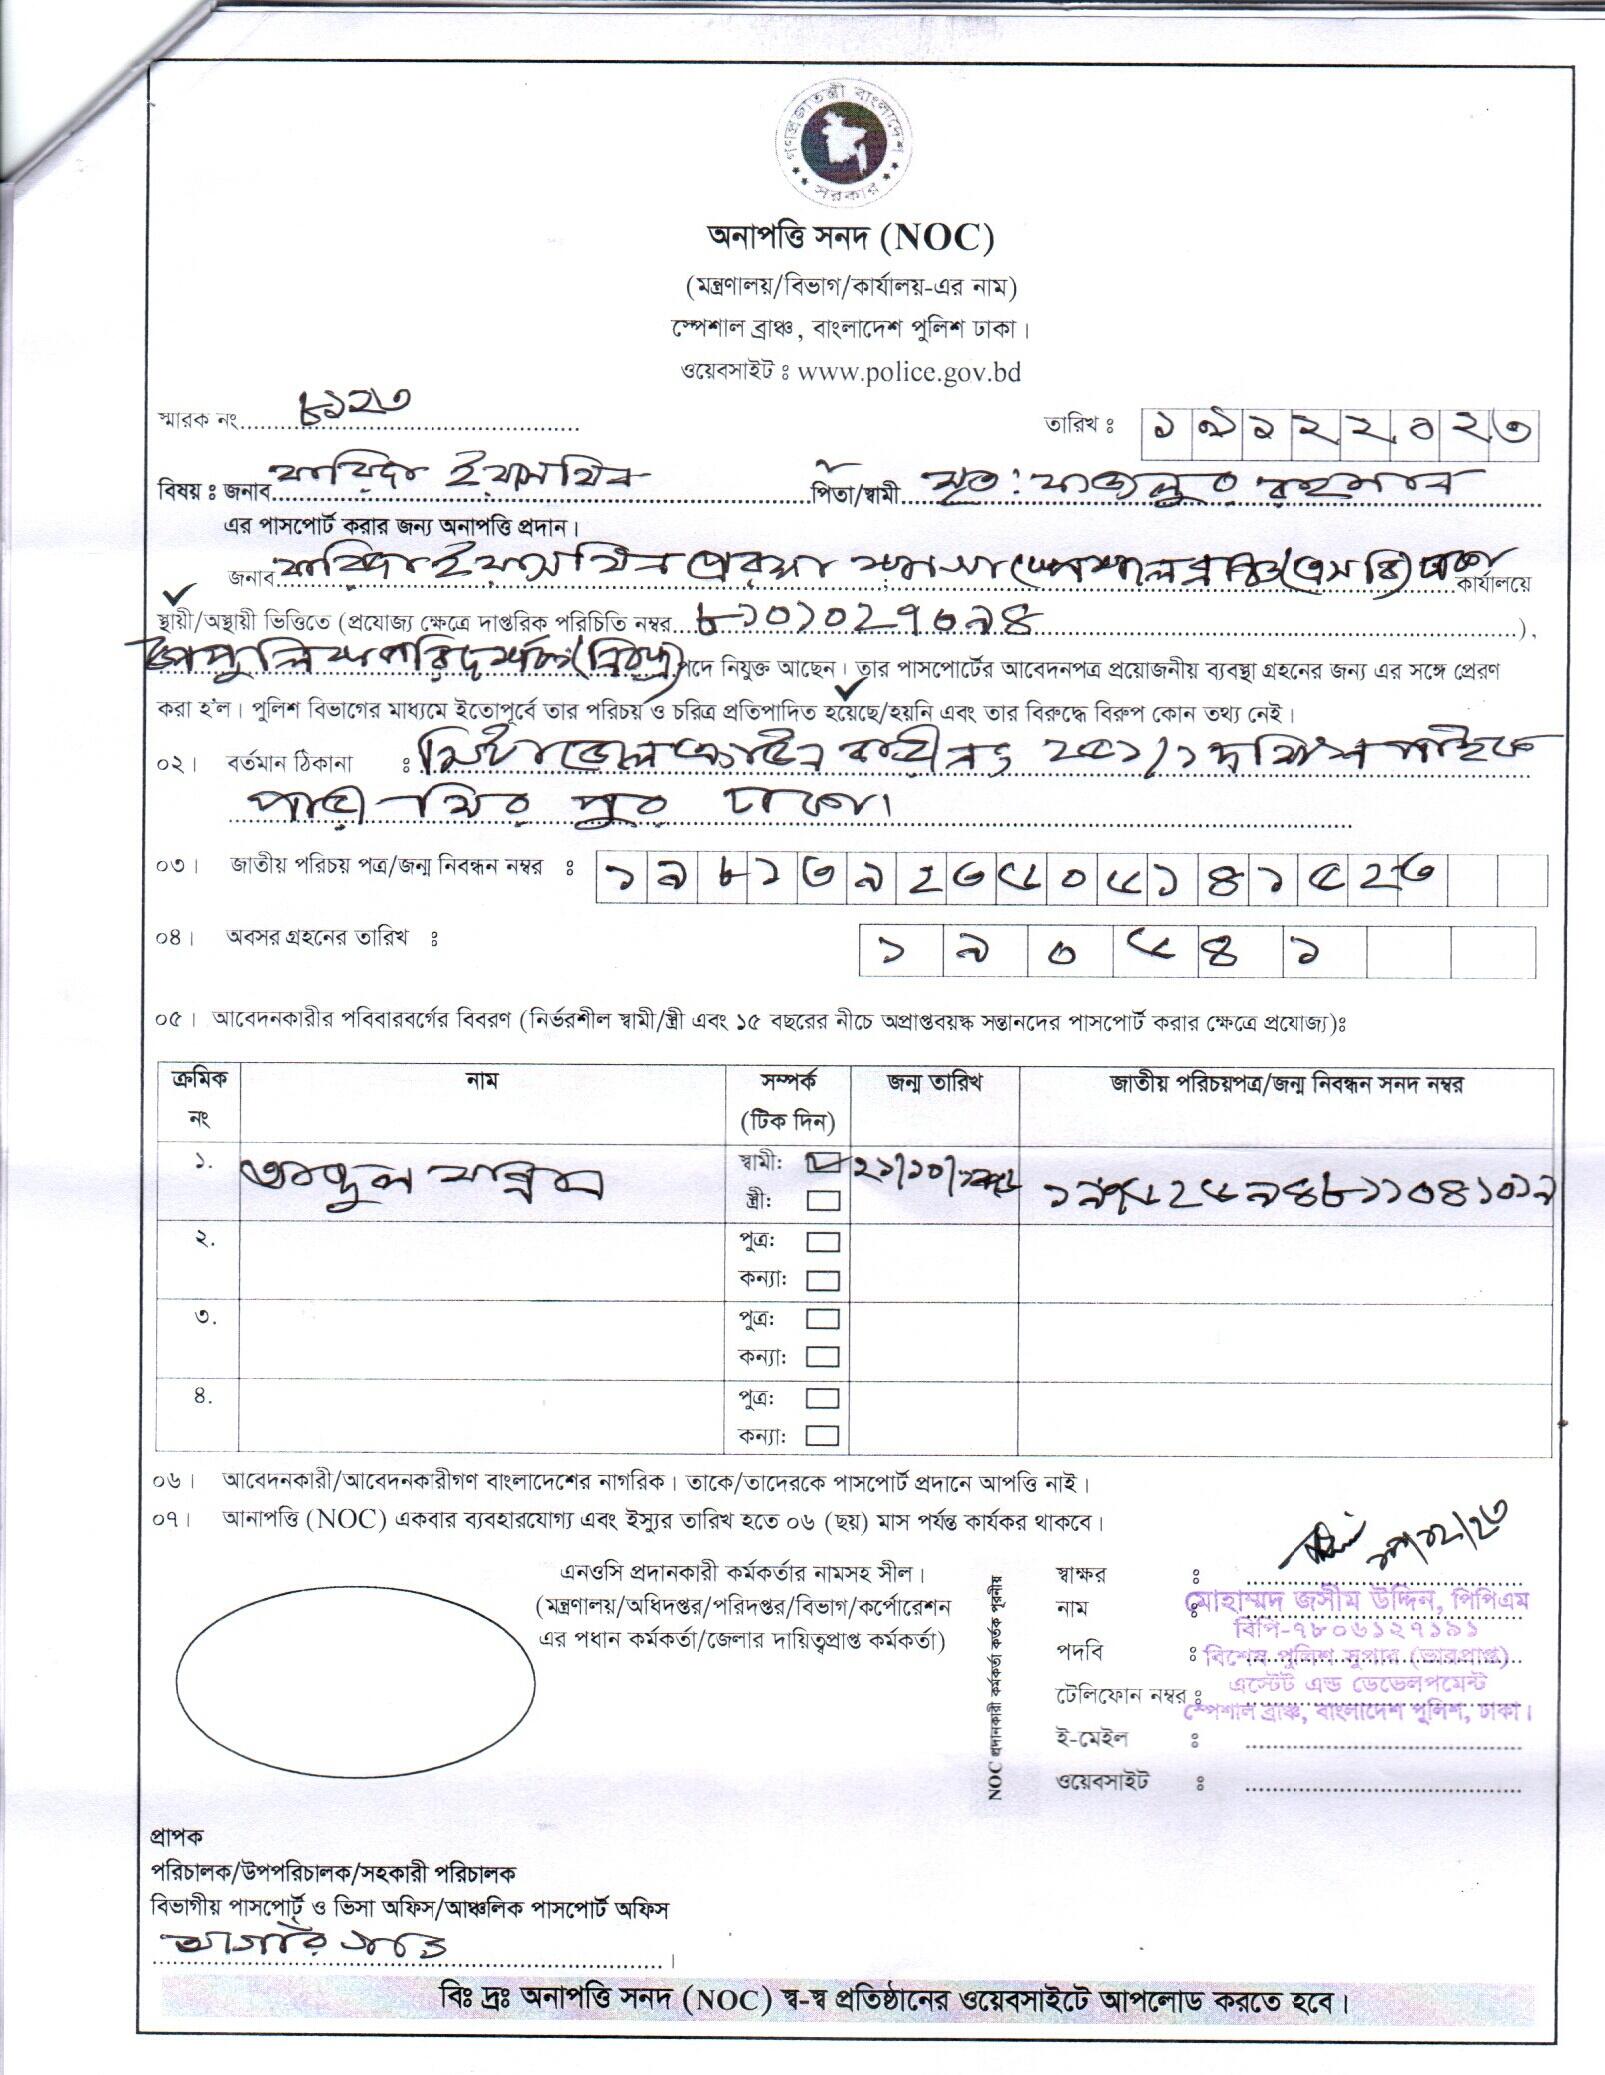 গণপ্রজাতন্ত্রী বাংলাদেশ
সরকার
অনাপত্তি সনদ (NOC)
(মন্ত্রণালয়/বিভাগ/কার্যালয়-এর নাম)
স্পেশাল ব্রাঞ্চ, বাংলাদেশ পুলিশ ঢাকা।
ওয়েবসাইট ঃ www.police.gov.bd
স্মারক নং ৮১২৩ তারিখ ঃ ১৯১২২০২৩
বিষয় ঃ জনাব ফারিদা ইয়াসমিন পিতা/স্বামী মৃত: ফজলুর রহমান
এর পাসপোর্ট করার জন্য অনাপত্তি প্রদান।
জনাব ফরিদা ইয়াসমিন স্পেশাল ব্রাঞ্চ (এসবি) ঢাকা কার্যালয়ে
স্থায়ী/অস্থায়ী ভিত্তিতে (প্রযোজ্য ক্ষেত্রে দাপ্তরিক পরিচিতি নম্বর),
উপপুলিশ পরিদর্শক (নিরস্ত্র) পদে নিযুক্ত আছেন। তার পাসপোর্টের আবেদনপত্র প্রয়োজনীয় ব্যবস্থা গ্রহনের জন্য এর সঙ্গে প্রেরণ
করা হ'ল। পুলিশ বিভাগের মাধ্যমে ইতোপূর্বে তার পরিচয় ও চরিত্র প্রতিপাদিত হয়েছে/হয়নি এবং তার বিরুদ্ধে বিরুপ কোন তথ্য নেই।
০২। বর্তমান ঠিকানা ঃ বাড়ী নং ২৫১/১ দক্ষিণ পাইক
পাড়া মিরপুর ঢাকা।
০৩। জাতীয় পরিচয় পত্র/জন্ম নিবন্ধন নম্বর ঃ ১৯৮১৩৯২৩৫০৫১৪১৫২৩
০৪। অবসর গ্রহনের তারিখ ঃ ১৯০৫৪১
০৫। আবেদনকারীর পবিবারবর্গের বিবরণ (নির্ভরশীল স্বামী/স্ত্রী এবং ১৫ বছরের নীচে অপ্রাপ্তবয়স্ক সন্তানদের পাসপোর্ট করার ক্ষেত্রে প্রযোজ্য)ঃ
ক্রমিক নাম সম্পর্ক জন্ম তারিখ জাতীয় পরিচয়পত্র/জন্ম নিবন্ধন সনদ নম্বর
নং (টিক দিন)
১. আব্দুল মান্নান স্বামী:
স্ত্রী:
২. পুত্র:
কন্যা:
৩. পুত্র:
কন্যা:
৪. পুত্র:
কন্যা:
০৬। আবেদনকারী/আবেদনকারীগণ বাংলাদেশের নাগরিক। তাকে/তাদেরকে পাসপোর্ট প্রদানে আপত্তি নাই।
০৭। আনাপত্তি (NOC) একবার ব্যবহারযোগ্য এবং ইস্যুর তারিখ হতে ০৬ (ছয়) মাস পর্যন্ত কার্যকর থাকবে।
এনওসি প্রদানকারী কর্মকর্তার নামসহ সীল।
(মন্ত্রণালয়/অধিদপ্তর/পরিদপ্তর/বিভাগ/কর্পোরেশন
এর পধান কর্মকর্তা/জেলার দায়িত্বপ্রাপ্ত কর্মকর্তা)
NOC প্রদানকারী কর্মকর্তা কর্তৃক পূরনীয়
স্বাক্ষর ঃ
নাম ঃ মোহাম্মদ জসীম উদ্দিন, পিপিএম
বিপি-৭৮০৬১২৭১৯১
পদবি ঃ বিশেষ পুলিশ সুপার (ভারপ্রাপ্ত)
এস্টেট এন্ড ডেভেলপমেন্ট
টেলিফোন নম্বর ঃ স্পেশাল ব্রাঞ্চ, বাংলাদেশ পুলিশ, ঢাকা।
ই-মেইল ঃ
ওয়েবসাইট ঃ
প্রাপক
পরিচালক/উপপরিচালক/সহকারী পরিচালক
বিভাগীয় পাসপোর্ট ও ভিসা অফিস/আঞ্চলিক পাসপোর্ট অফিস
আগারগাঁও।
বিঃ দ্রঃ অনাপত্তি সনদ (NOC) স্ব-স্ব প্রতিষ্ঠানের ওয়েবসাইটে আপলোড করতে হবে।